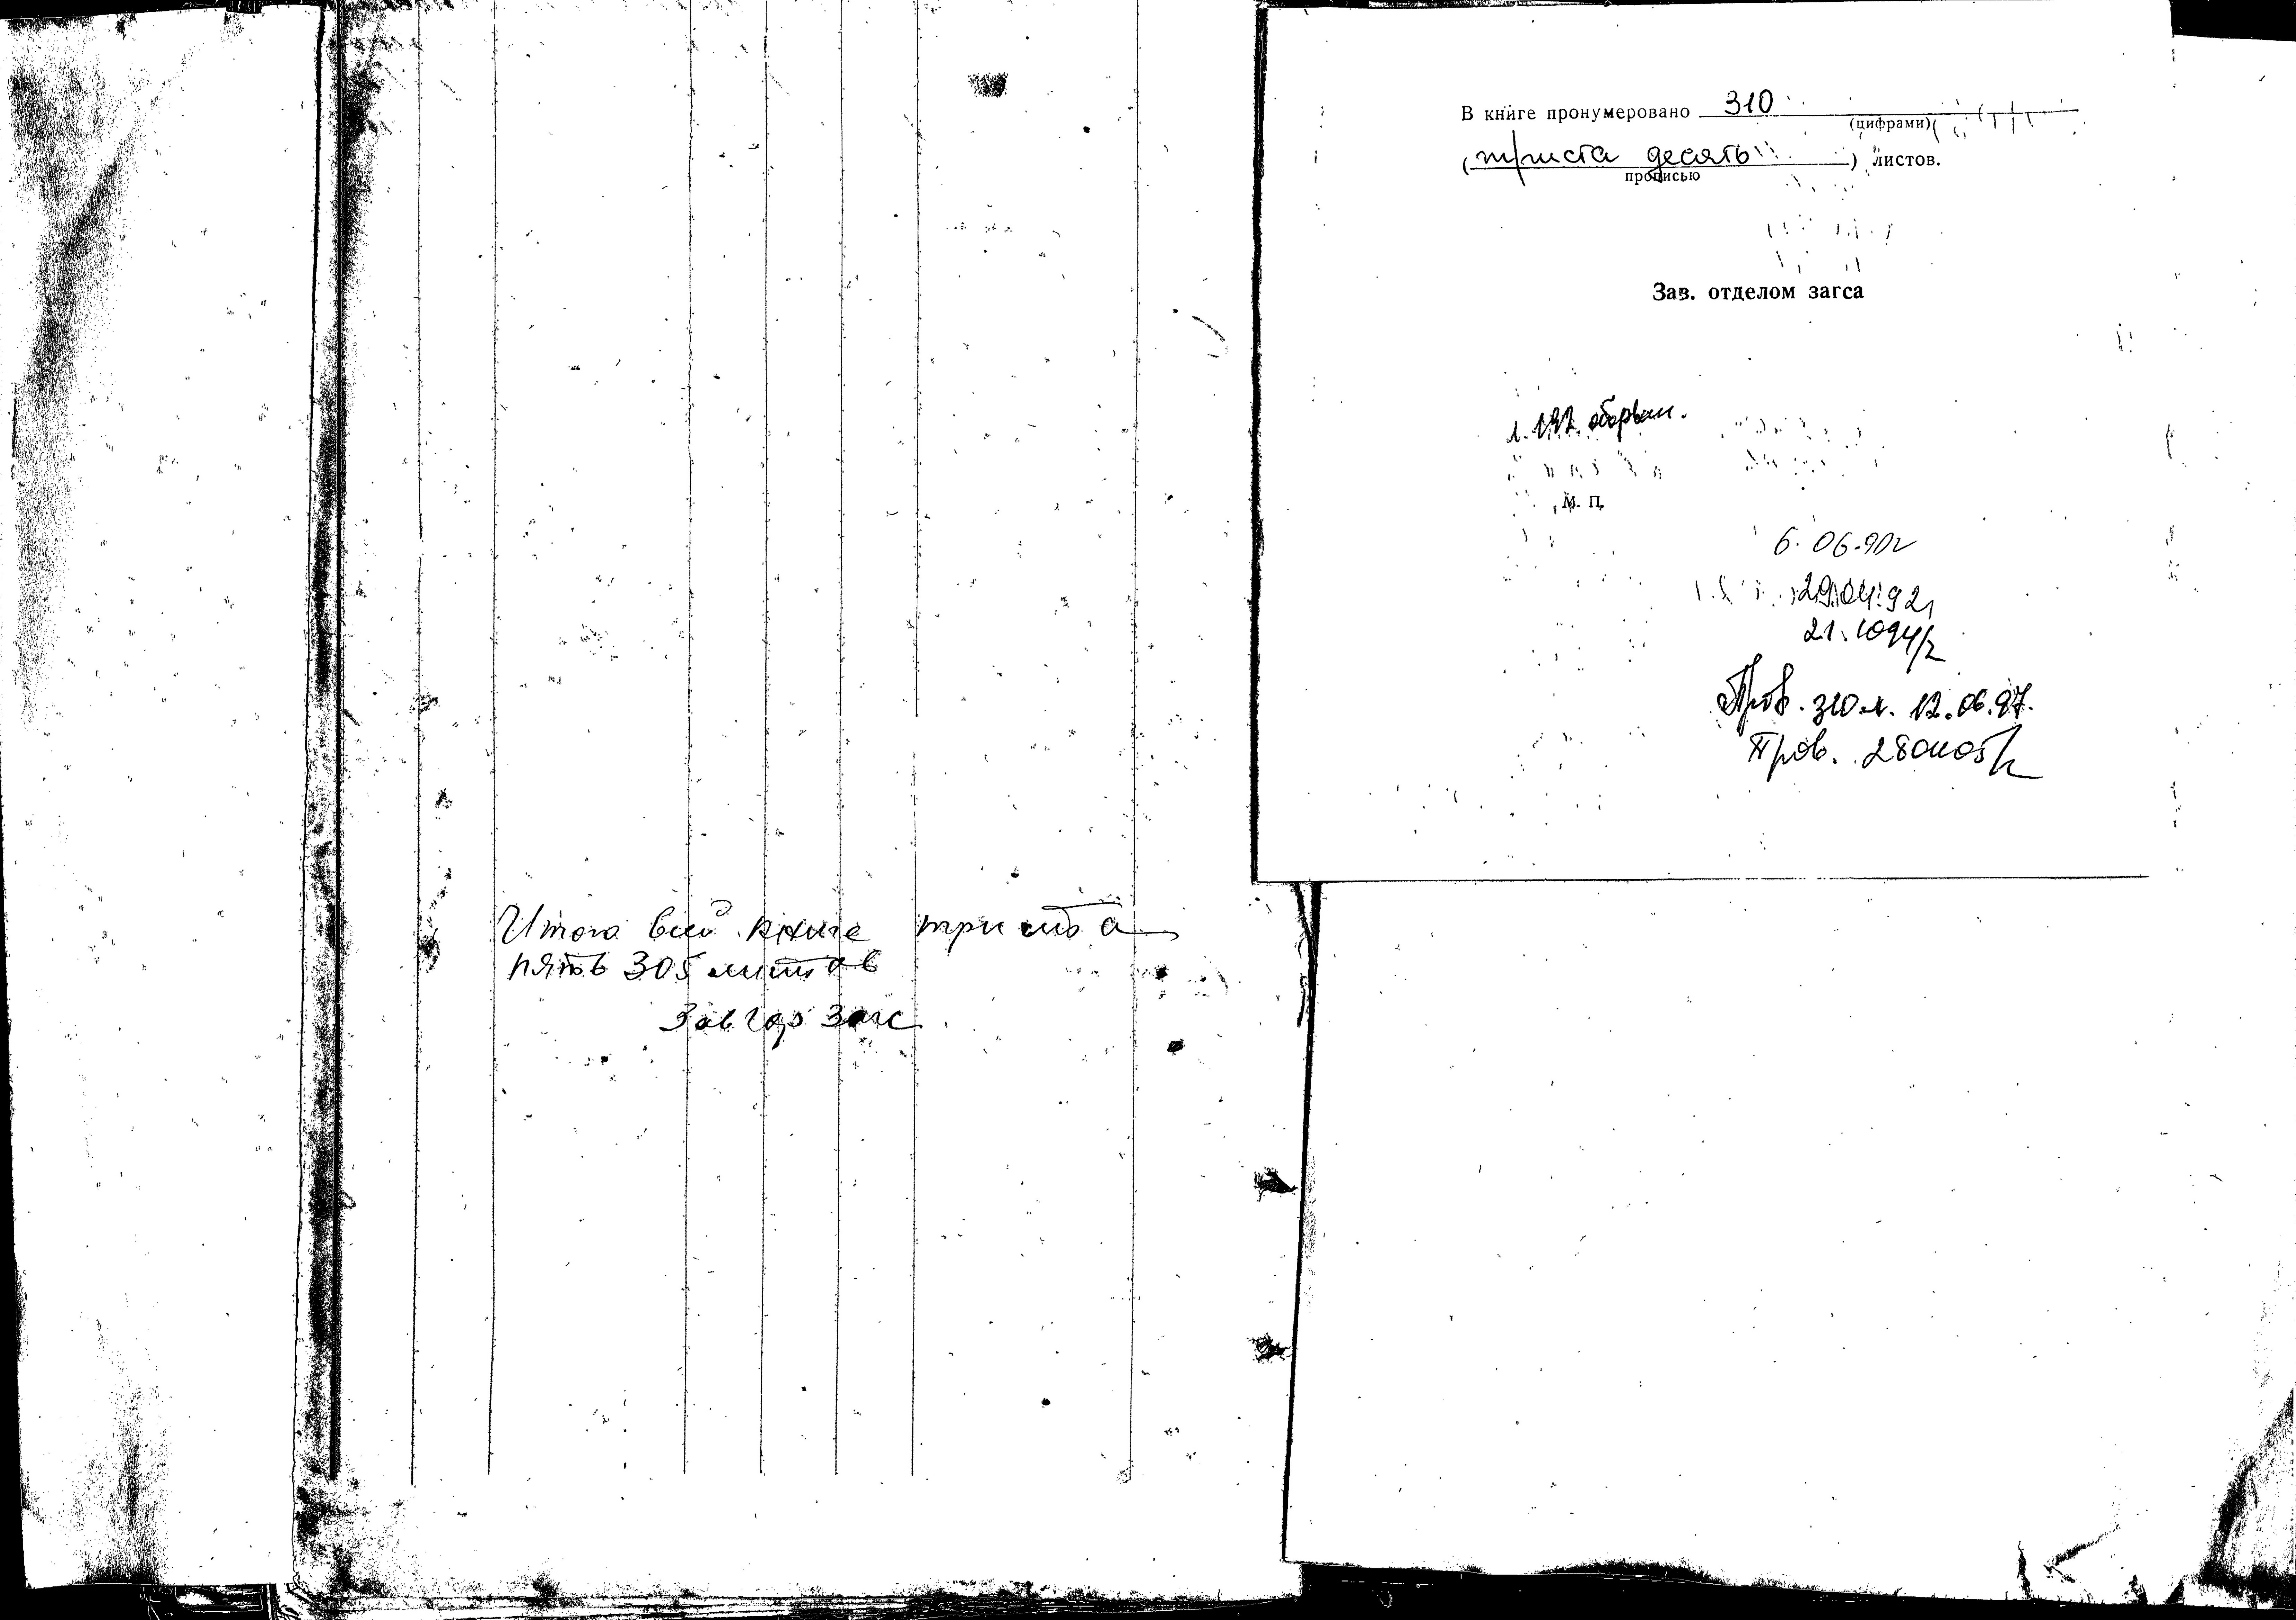 Итого всей книге триста
пять 305 листов
Зав гор Загс
В книге пронумеровано 310
(цифрами)
(триста десять) листов.
прописью
Зав. отделом загса
л. 197 оборван.
М. П.
6.06.90г
29.04.92г
21.1094г
Пров. 310 л. 12.06.97.
Пров. 280405г